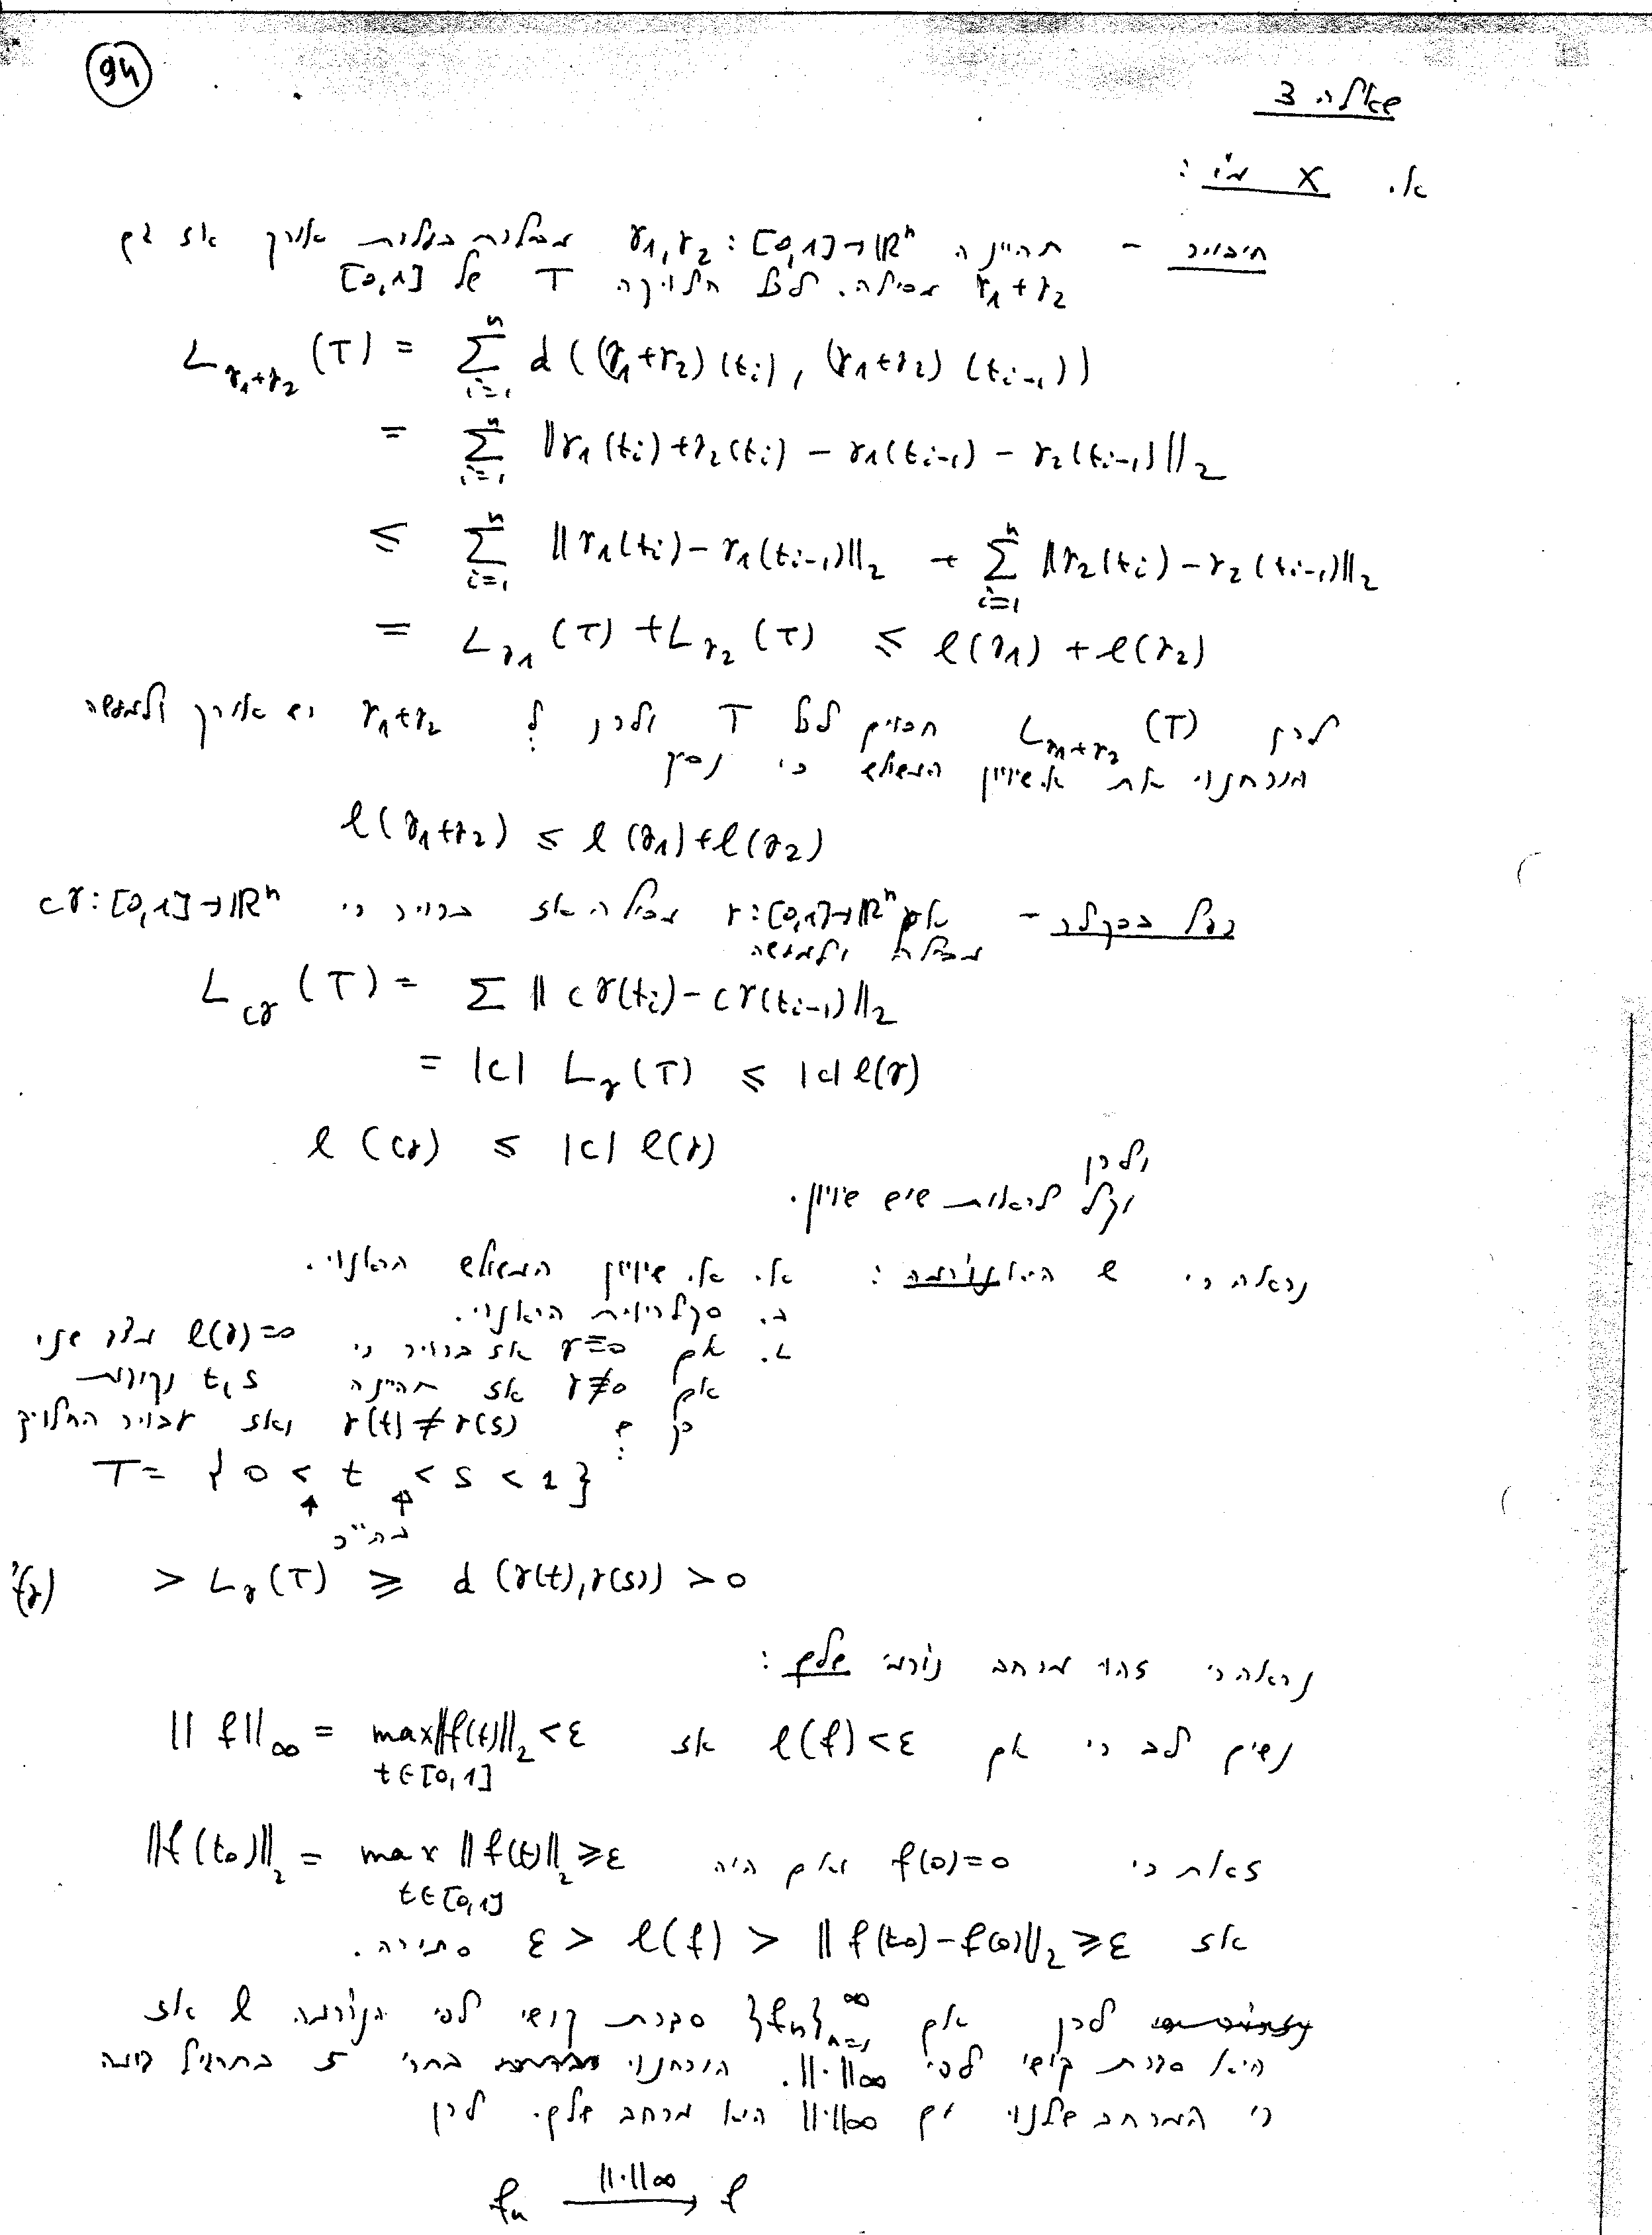 94
שאלה 3
א. X מ"ו :
חיבור - תהיינה γ1,γ2 : [0,1]→ℝⁿ מסילות בעלות אורך אז גם
γ1+γ2 מסילה. לכל חלוקה T של [0,1]
L_{γ1+γ2} (T) = Σ_{i=1}^{n} d ((γ1+γ2)(ti), (γ1+γ2)(ti-1))
= Σ_{i=1}^{n} ||γ1(ti)+γ2(ti) - γ1(ti-1) - γ2(ti-1)||₂
≤ Σ_{i=1}^{n} ||γ1(ti)-γ1(ti-1)||₂ + Σ_{i=1}^{n} ||γ2(ti)-γ2(ti-1)||₂
= L_{γ1}(T) + L_{γ2}(T) ≤ ℓ(γ1) + ℓ(γ2)
לכן L_{γ1+γ2}(T) חסום לכל T ולכן ל: γ1+γ2 יש אורך ולמעשה
הוכחנו את אי שוויון המשולש כי נסיק
ℓ(γ1+γ2) ≤ ℓ(γ1)+ℓ(γ2)
כפל בסקלר - אם γ:[0,1]→ℝⁿ מסילה אז ברור כי cγ:[0,1]→ℝⁿ
מסילה ולמעשה
L_{cγ}(T) = Σ || cγ(ti) - cγ(ti-1) ||₂
= |c| L_γ(T) ≤ |c| ℓ(γ)
ולכן
ℓ(cγ) ≤ |c| ℓ(γ)
וקל לראות שיש שוויון.
נראה כי ℓ היא נורמה : א. אי שוויון המשולש הראנו.
ב. סקלריות הראנו.
ג. אם γ≡0 אז ברור כי ℓ(γ)=0 מצד שני
אם γ≢0 אז תהיינה t,s נקודות
כך ש: γ(t)≠γ(s) ואז עבור החלוק
T= { 0 < t < s < 1 }
בה"כ
(γ) > L_γ(T) ≥ d(γ(t),γ(s)) > 0
נראה כי זהו מרחב נורמי שלם :
נשים לב כי אם ℓ(f)<ε אז ||f||∞ = max_{t∈[0,1]} ||f(t)||₂ < ε
זאת כי f(0)=0 ואם היה ||f(t0)||₂ = max_{t∈[0,1]} ||f(t)||₂ ≥ ε
אז ε > ℓ(f) > ||f(t0)-f(0)||₂ ≥ ε סתירה.
לכן אם {fn}_{n=1}^{∞} סדרת קושי לפי הנורמה ℓ אז
היא סדרת קושי לפי ||·||∞. הוכחנו בתר' 5 בתרגיל דומה
כי המרחב שלנו עם ||·||∞ הוא מרחב שלם. לכן
fn —||·||∞→ f